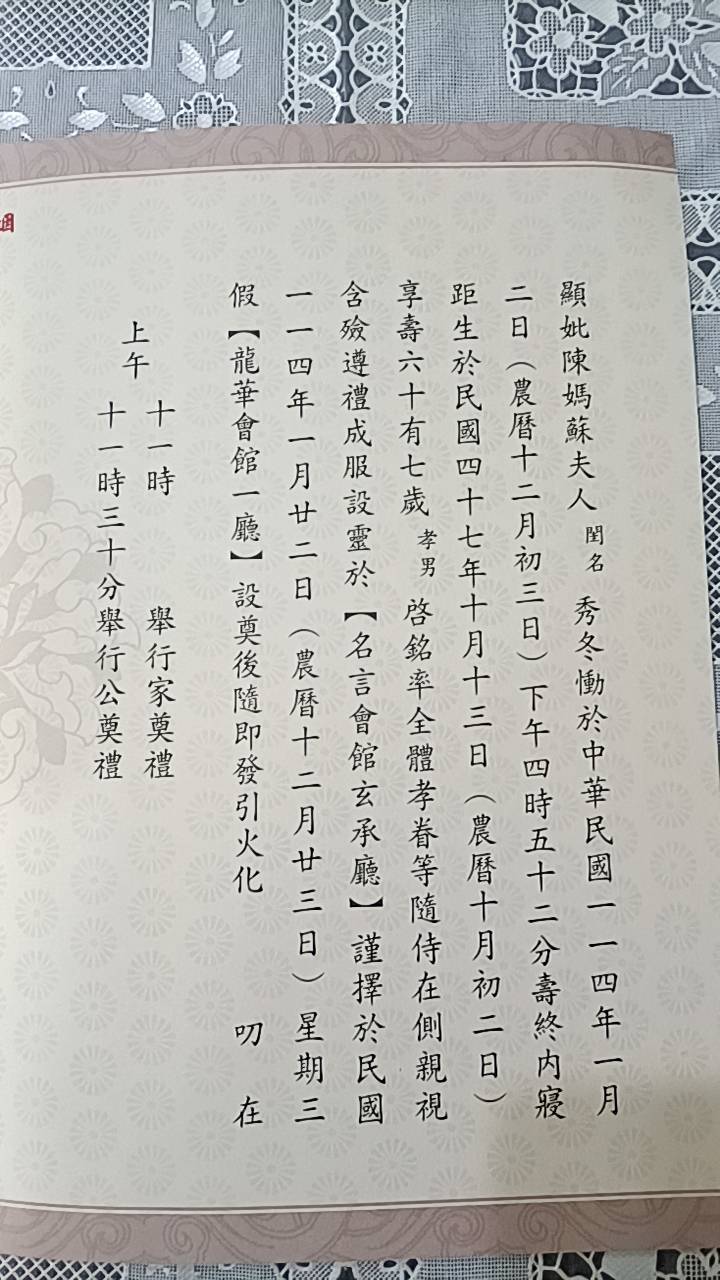 顯妣陳媽蘇夫人 閨名 秀冬慟於中華民國一一四年一月
二日（農曆十二月初三日）下午四時五十二分壽終內寢
距生於民國四十七年十月十三日（農曆十月初二日）
享壽六十有七歲 孝男 啓銘率全體孝眷等隨侍在側親視
含殮遵禮成服設靈於【名言會館玄承廳】謹擇於民國
一一四年一月廿二日（農曆十二月廿三日）星期三
假【龍華會館一廳】設奠後隨即發引火化 叨在
上午
十一時 舉行家奠禮
十一時三十分舉行公奠禮